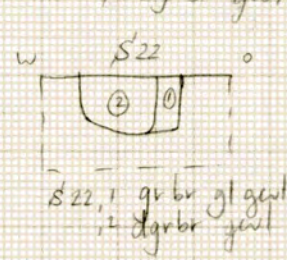 S22
W O
② ①
S22,1 gr br gl gevl
,2 dgrbr gevl